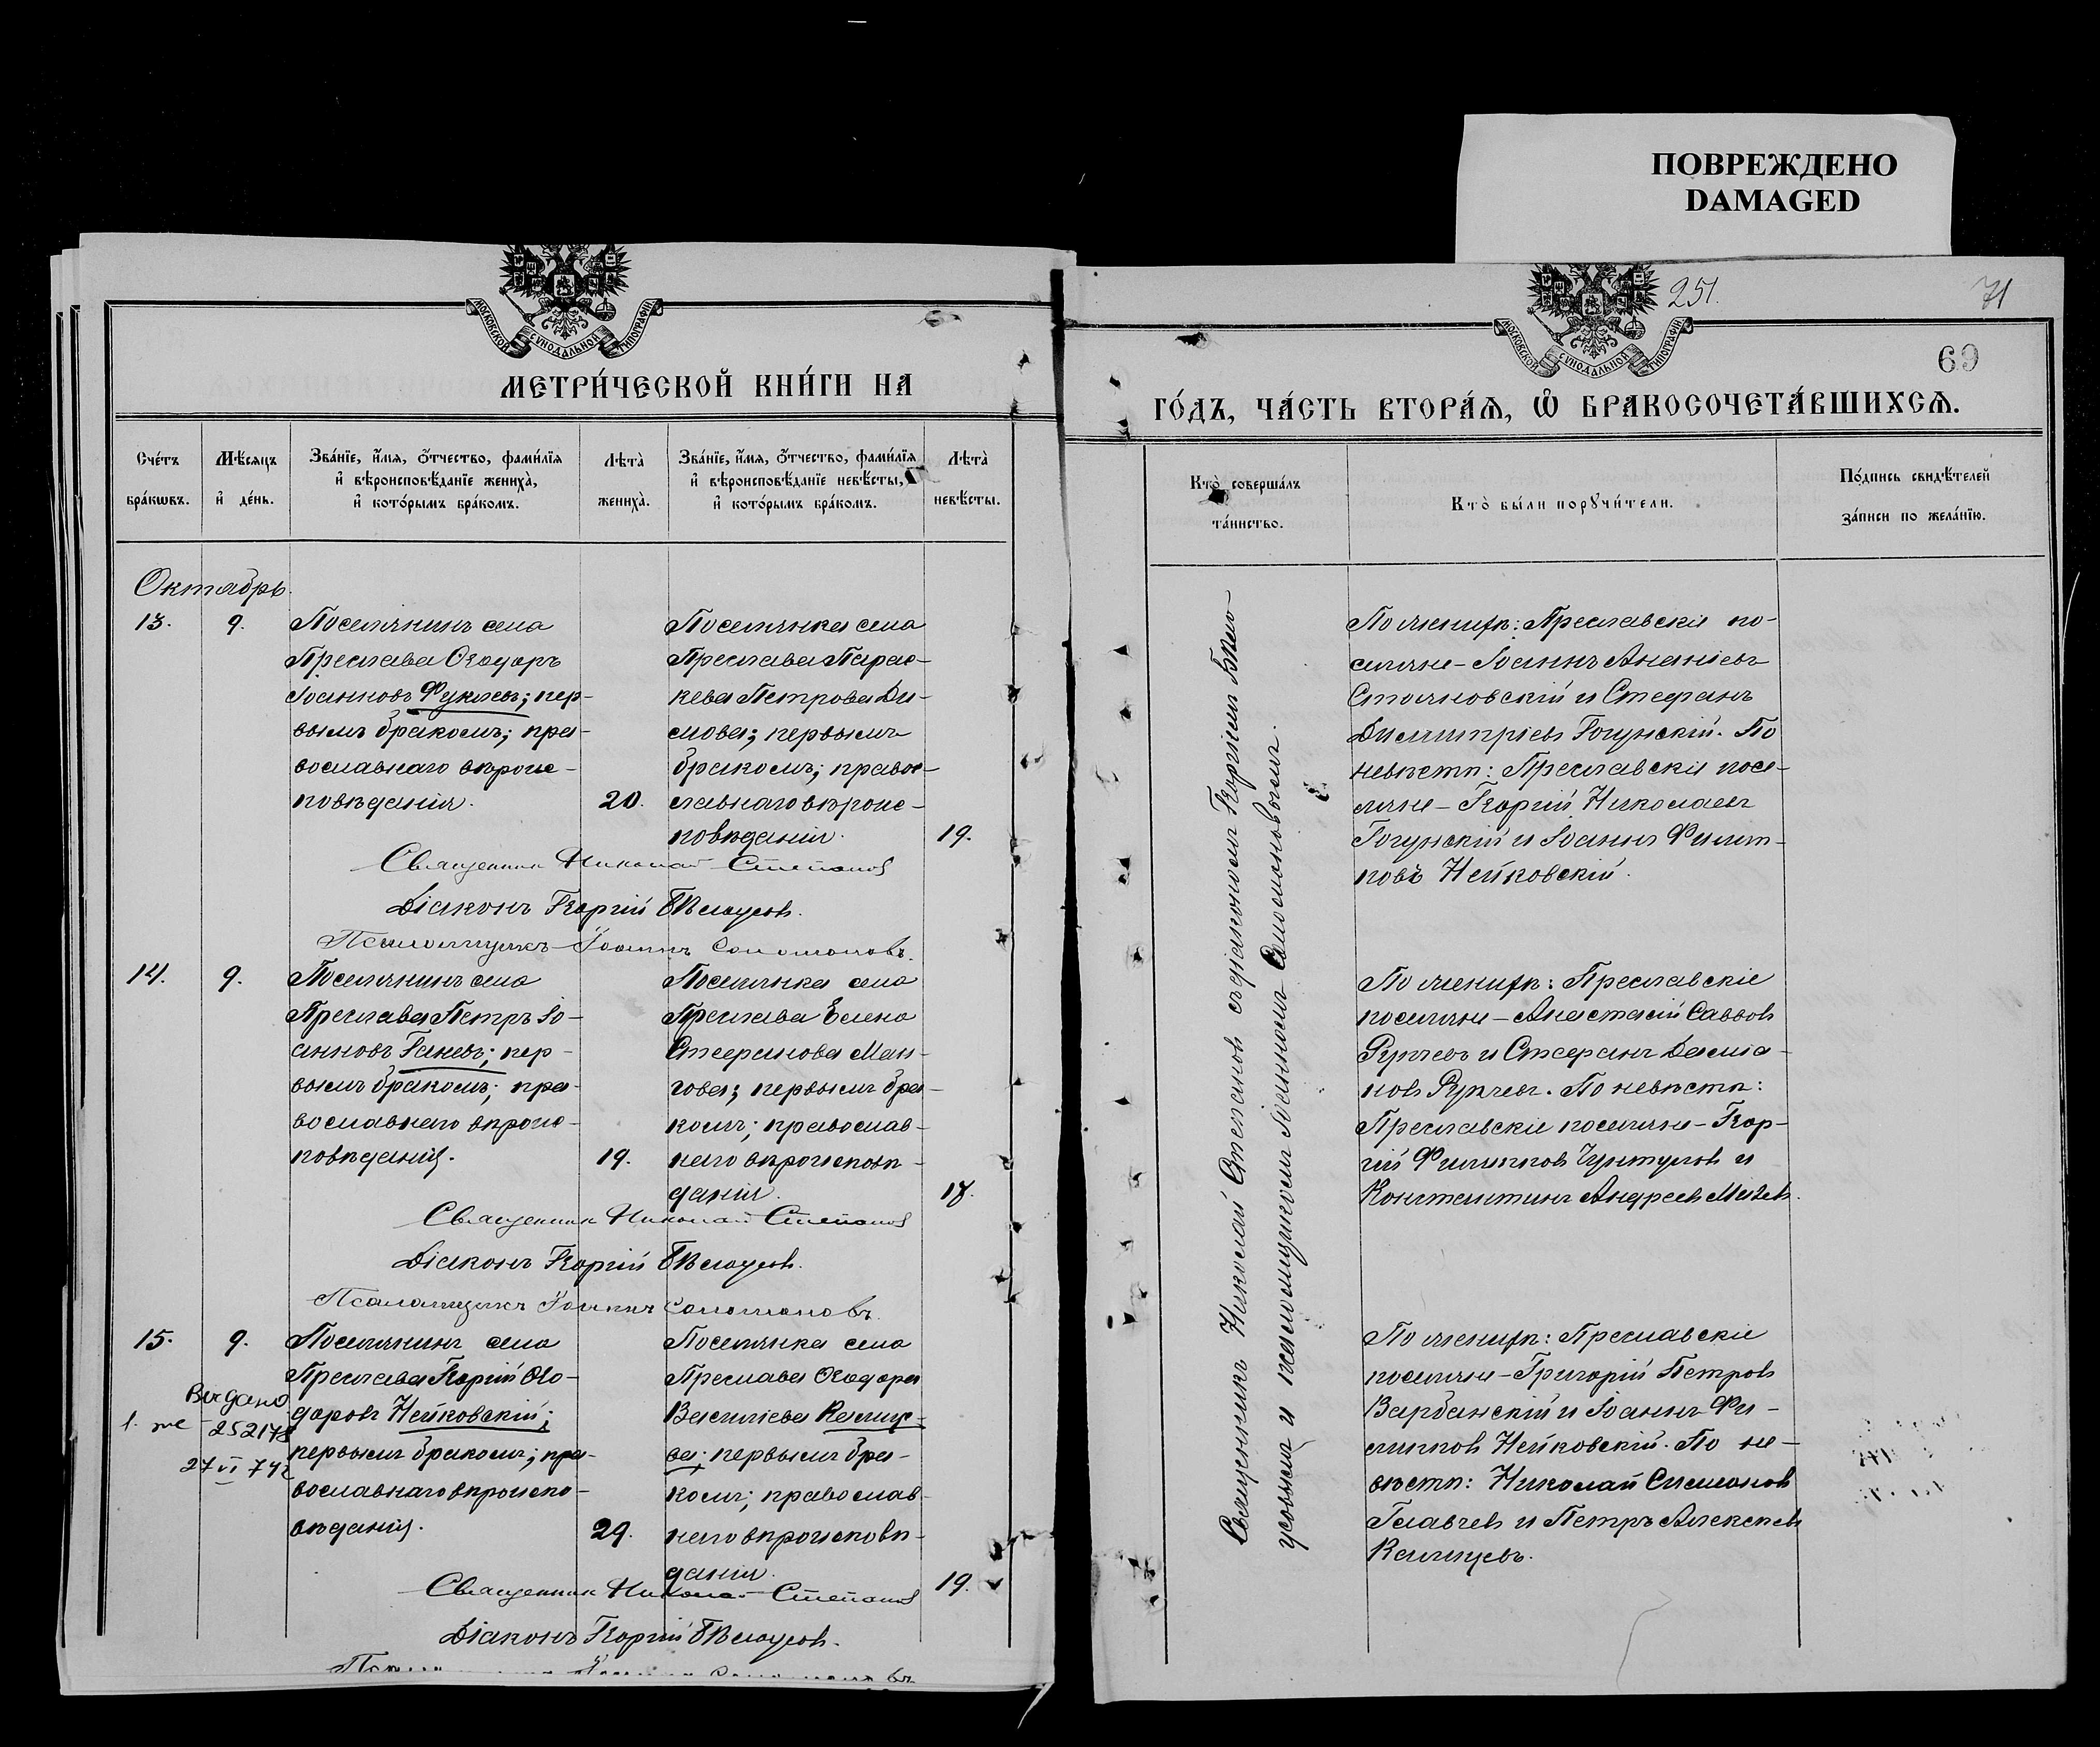 ПОВРЕЖДЕНО
DAMAGED
МОСКОВСКОЙ СѴНОДАЛЬНОЙ ТИПОГРАФІИ.
МЕТРИ́ЧЕСКОЙ КНИ́ГИ НА
Сче́тъ бра́кѡвъ.
Мѣ́сяцъ и҆ де́нь.
Зва́нїе, и҆́мя, ѻ҆́тчество, фами́лїя
и҆ вѣроисповѣ́данїе жениха̀,
и҆ кото́рымъ бра́комъ.
Лѣта̀ жениха̀.
Зва́нїе, и҆́мя, ѻ҆́тчество, фами́лїя
и҆ вѣроисповѣ́данїе невѣ́сты,
и҆ кото́рымъ бра́комъ.
Лѣта̀ невѣ́сты.
Октябрь.
13. 9.
Поселянинъ села
Преслава Ѳеодоръ
Іоанновъ Фукловъ; пер-
вымъ бракомъ; пра-
вославнаго вѣроис-
повѣданія.
20.
Поселянка села
Преслава Парас-
кева Петрова Ди-
мова; первымъ
бракомъ; правос-
лавнаго вѣроис-
повѣданія.
19.
Священникъ Николай Степановъ
Діаконъ Георгій Бѣлоусовъ.
Псаломщикъ Іоаннъ Соломоновъ.
14. 9.
Поселянинъ села
Преслава Петръ Іо-
анновъ Ганевъ; пер-
вымъ бракомъ; пра-
вославнаго вѣроис-
повѣданія.
19.
Поселянка села
Преслава Елена
Стефанова Ман-
гова; первымъ бра-
комъ; православ-
наго вѣроисповѣ-
данія.
18.
Священникъ Николай Степановъ
Діаконъ Георгій Бѣлоусовъ.
Псаломщикъ Іоаннъ Соломоновъ.
15. 9.
Поселянинъ села
Преслава Георгій Ѳео-
доровъ Нейковскій;
первымъ бракомъ; пра-
вославнаго вѣроиспо-
вѣданія.
29.
Выдано
252178
Поселянка села
Преслава Ѳеодора
Василіева Калиу-
ва; первымъ бра-
комъ; православ-
наго вѣроисповѣ-
данія.
19.
Священникъ Николай Степановъ
Діаконъ Георгій Бѣлоусовъ.
МОСКОВСКОЙ СѴНОДАЛЬНОЙ ТИПОГРАФІИ.
251.
71
69
ГО́ДЪ, ЧА́СТЬ ВТОРА́Ѧ, Ѽ БРАКОСОЧЕТА́ВШИХСѦ.
Кто̀ соверша́лъ
та́инство.
Кто̀ бы́ли порꙋчи́тели.
По́дпись свидѣ́телей
за́писи по жела́нїю.
Священникъ Николай Степановъ съ діакономъ Георгіемъ Бѣло-
усовымъ и псаломщикомъ Іоанномъ Соломоновымъ.
По женихѣ: Преславскіе по-
селяне - Іоаннъ Ананіевъ
Стояновскій и Стефанъ
Димитріевъ Гогунскій. По
невѣстѣ: Преславскіе посе-
ляне - Георгій Николаевъ
Гогунскій и Іоаннъ Филип-
повъ Нейковскій.
По женихѣ: Преславскіе
поселяне - Анастасій Саввовъ
Рупчевъ и Стефанъ Даміа-
новъ Рупчевъ. По невѣстѣ:
Преславскіе поселяне - Геор-
гій Филипповъ Чунтуловъ и
Константинъ Андреевъ Митевъ.
По женихѣ: Преславскіе
поселяне - Григорій Петровъ
Варбанскій и Іоаннъ Фи-
липповъ Нейковскій. По не-
вѣстѣ: Николай Симеоновъ
Главчевъ и Петръ Алексѣевъ